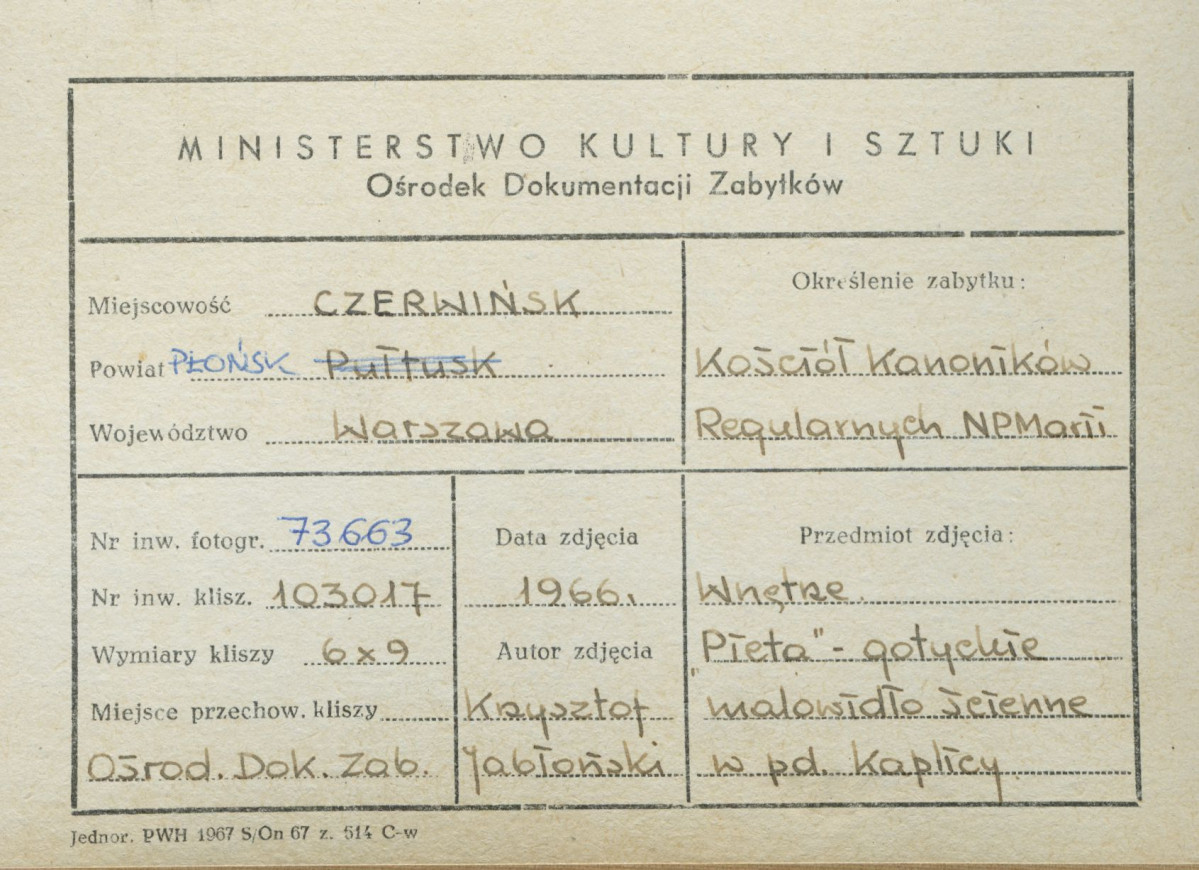 MINISTERSTWO KULTURY I SZTUKI
Ośrodek Dokumentacji Zabytków
Miejscowość CZERWIŃSK
Powiat PŁOŃSK Pułtusk
Województwo Warszawa
Określenie zabytku:
Kościół Kanoników
Regularnych NPMarii
Nr inw. fotogr. 73663
Nr inw. klisz. 103017
Wymiary kliszy 6x9
Miejsce przechow. kliszy
Ośrod. Dok. Zab.
Data zdjęcia
1966.
Autor zdjęcia
Krzysztof
Jabłoński
Przedmiot zdjęcia:
Wnętrze.
"Pieta" - gotyckie
malowidło ścienne
w pd. Kaplicy
Jednor. PWH 1967 S/On 67 z. 514 C-w